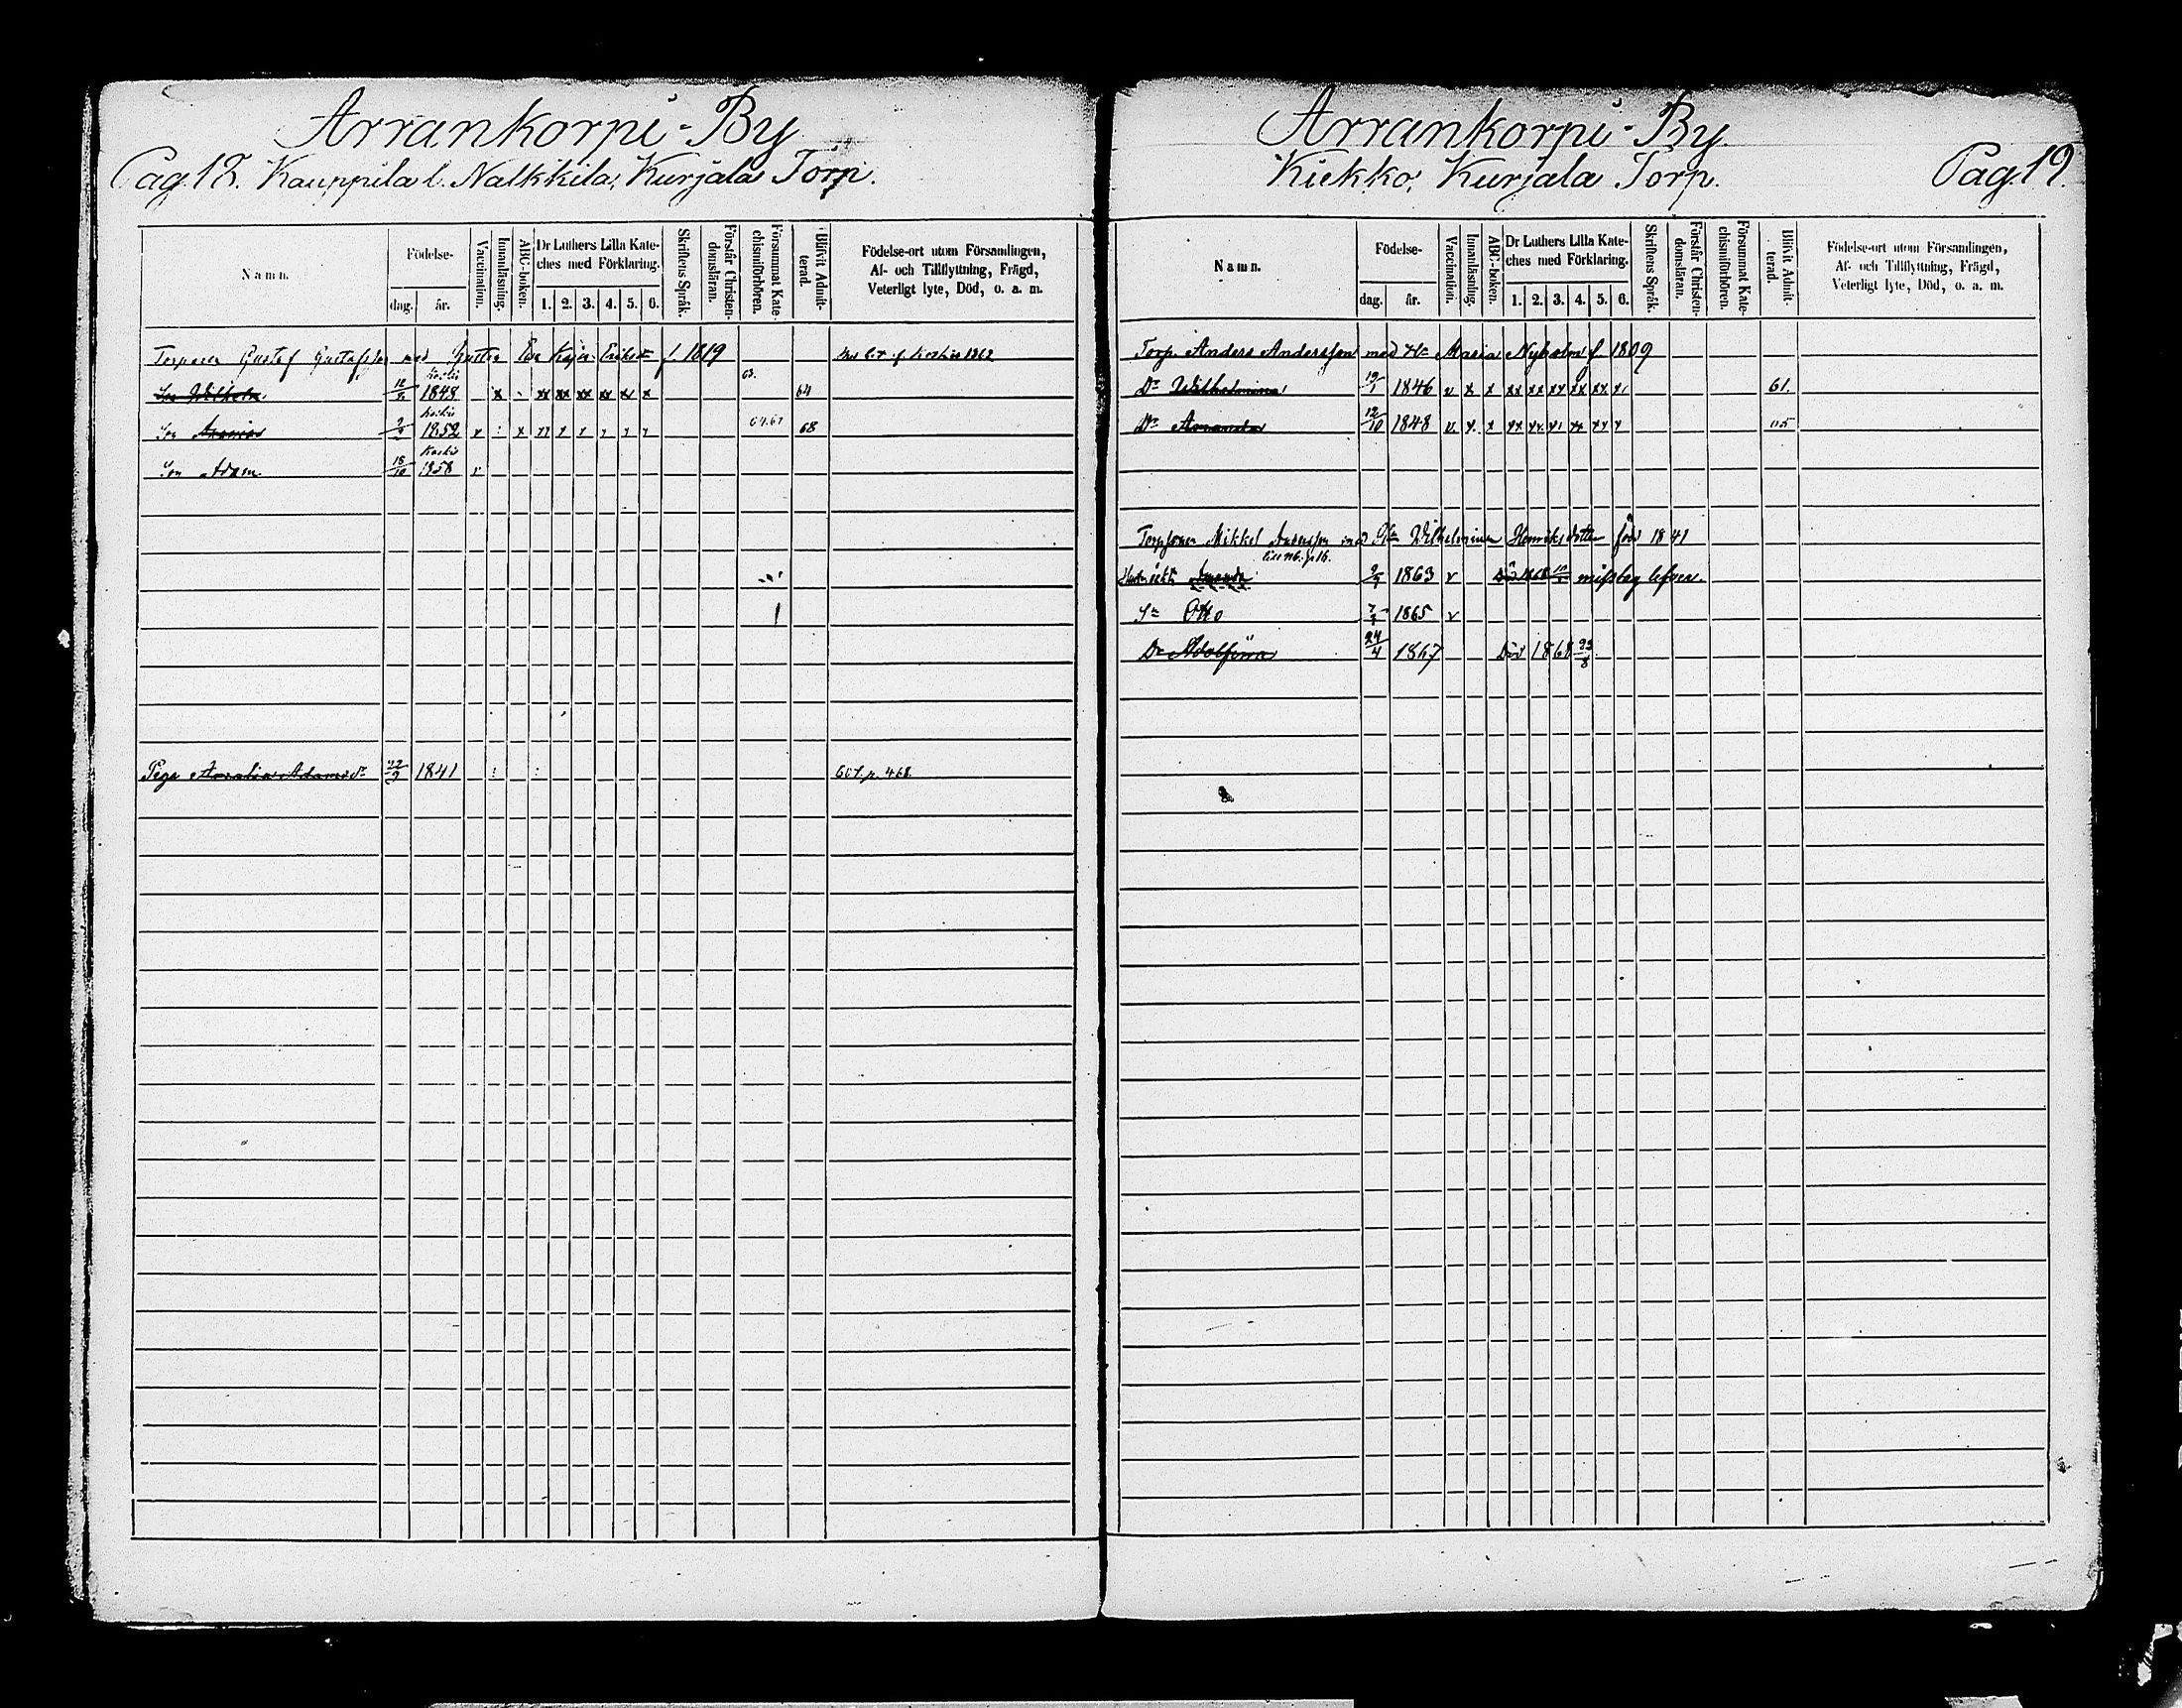 Arrankorpi-By
Pag. 18. Kauppila l. Nalkkila, Kurjala Torp.
Namn.
Födelse-
dag.
år.
Vaccination.
Innanläsning.
ABC-boken.
Dr Luthers Lilla Kate-
ches med Förklaring.
1. 2. 3. 4. 5. 6.
Skriftens Språk.
Förstår Christen-
domsläran.
Försummat Kate-
chismiförhören.
Blifvit Admit-
terad.
Födelse-ort utom Församlingen,
Af- och Tillflyttning, Frägd,
Veterligt lyte, Död, o. a. m.
Torparen Gustaf Gustafsson med Hustru Eva Kajsa Eriksdr f 1819 1862
63.
Son Wilhelm 1848 x xx xx xx xx xx x 64
Son 1852 v x 68
Koskis
Son Adam 18/10 1858 v
Piga Amalia Adamsdr 22/7 1841 p. 468.
Arrankorpi-By
Kiekko, Kurjala Torp.
Pag. 19.
Namn.
Födelse-
dag.
år.
Vaccination.
Innanläsning.
ABC-boken.
Dr Luthers Lilla Kate-
ches med Förklaring.
1. 2. 3. 4. 5. 6.
Skriftens Språk.
Förstår Christen-
domsläran.
Försummat Kate-
chismiförhören.
Blifvit Admit-
terad.
Födelse-ort utom Församlingen,
Af- och Tillflyttning, Frägd,
Veterligt lyte, Död, o. a. m.
Torp. Anders Andersson med H:u Maria Nyholm f. 1809
Dr Wilhelmina 19/1 1846 v x x xx xx xx xx xx x 61.
Dr Amanda 12/10 1848 v x x xx xx x xx xx x
Torpson Mikkel Andersson med Wilhelmina Henriksdotter född 1841
Amanda 1863 v Död 1868
Sn Otto 1865 v
Dr Adolfina 24/4 1867 Död 1868 23/8